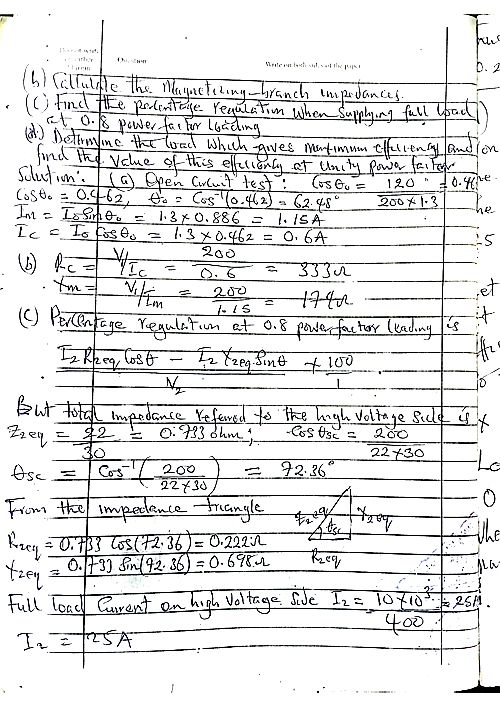 Question
Write on both sides of the paper
(b) Calculate the Magnetizing branch impedances.
(c) Find the percentage regulation when supplying full load
at 0.8 power factor leading
(d) Determine the load which gives maximum efficiency and
find the value of this efficiency at unity power factor
Solution: (a) Open Circuit test: Cosθo = 120 / 200×1.3 = 0.46
Cosθo = 0.462, θo = Cos⁻¹(0.462) = 62.48°
Im = IoSinθo = 1.3×0.886 = 1.15A
Ic = Io Cosθo = 1.3×0.462 = 0.6A
(b) Rc = V1/Ic = 200/0.6 = 333Ω
Xm = V1/Im = 200/1.15 = 174Ω
(c) Percentage regulation at 0.8 power factor leading is
I2R2eq Cosθ - I2X2eq Sinθ / V2 × 100/1
But total impedance referred to the high voltage side is
Z2eq = 22/30 = 0.733 ohm; Cosθsc = 200 / 22×30
θsc = Cos⁻¹(200 / 22×30) = 72.36°
From the impedance triangle
Z2eq X2eq θsc R2eq
R2eq = 0.733 Cos(72.36) = 0.222Ω
X2eq = 0.733 Sin(72.36) = 0.698Ω
Full load Current on high voltage side I2 = 10×10³ / 400 = 25A.
I2 = 25A